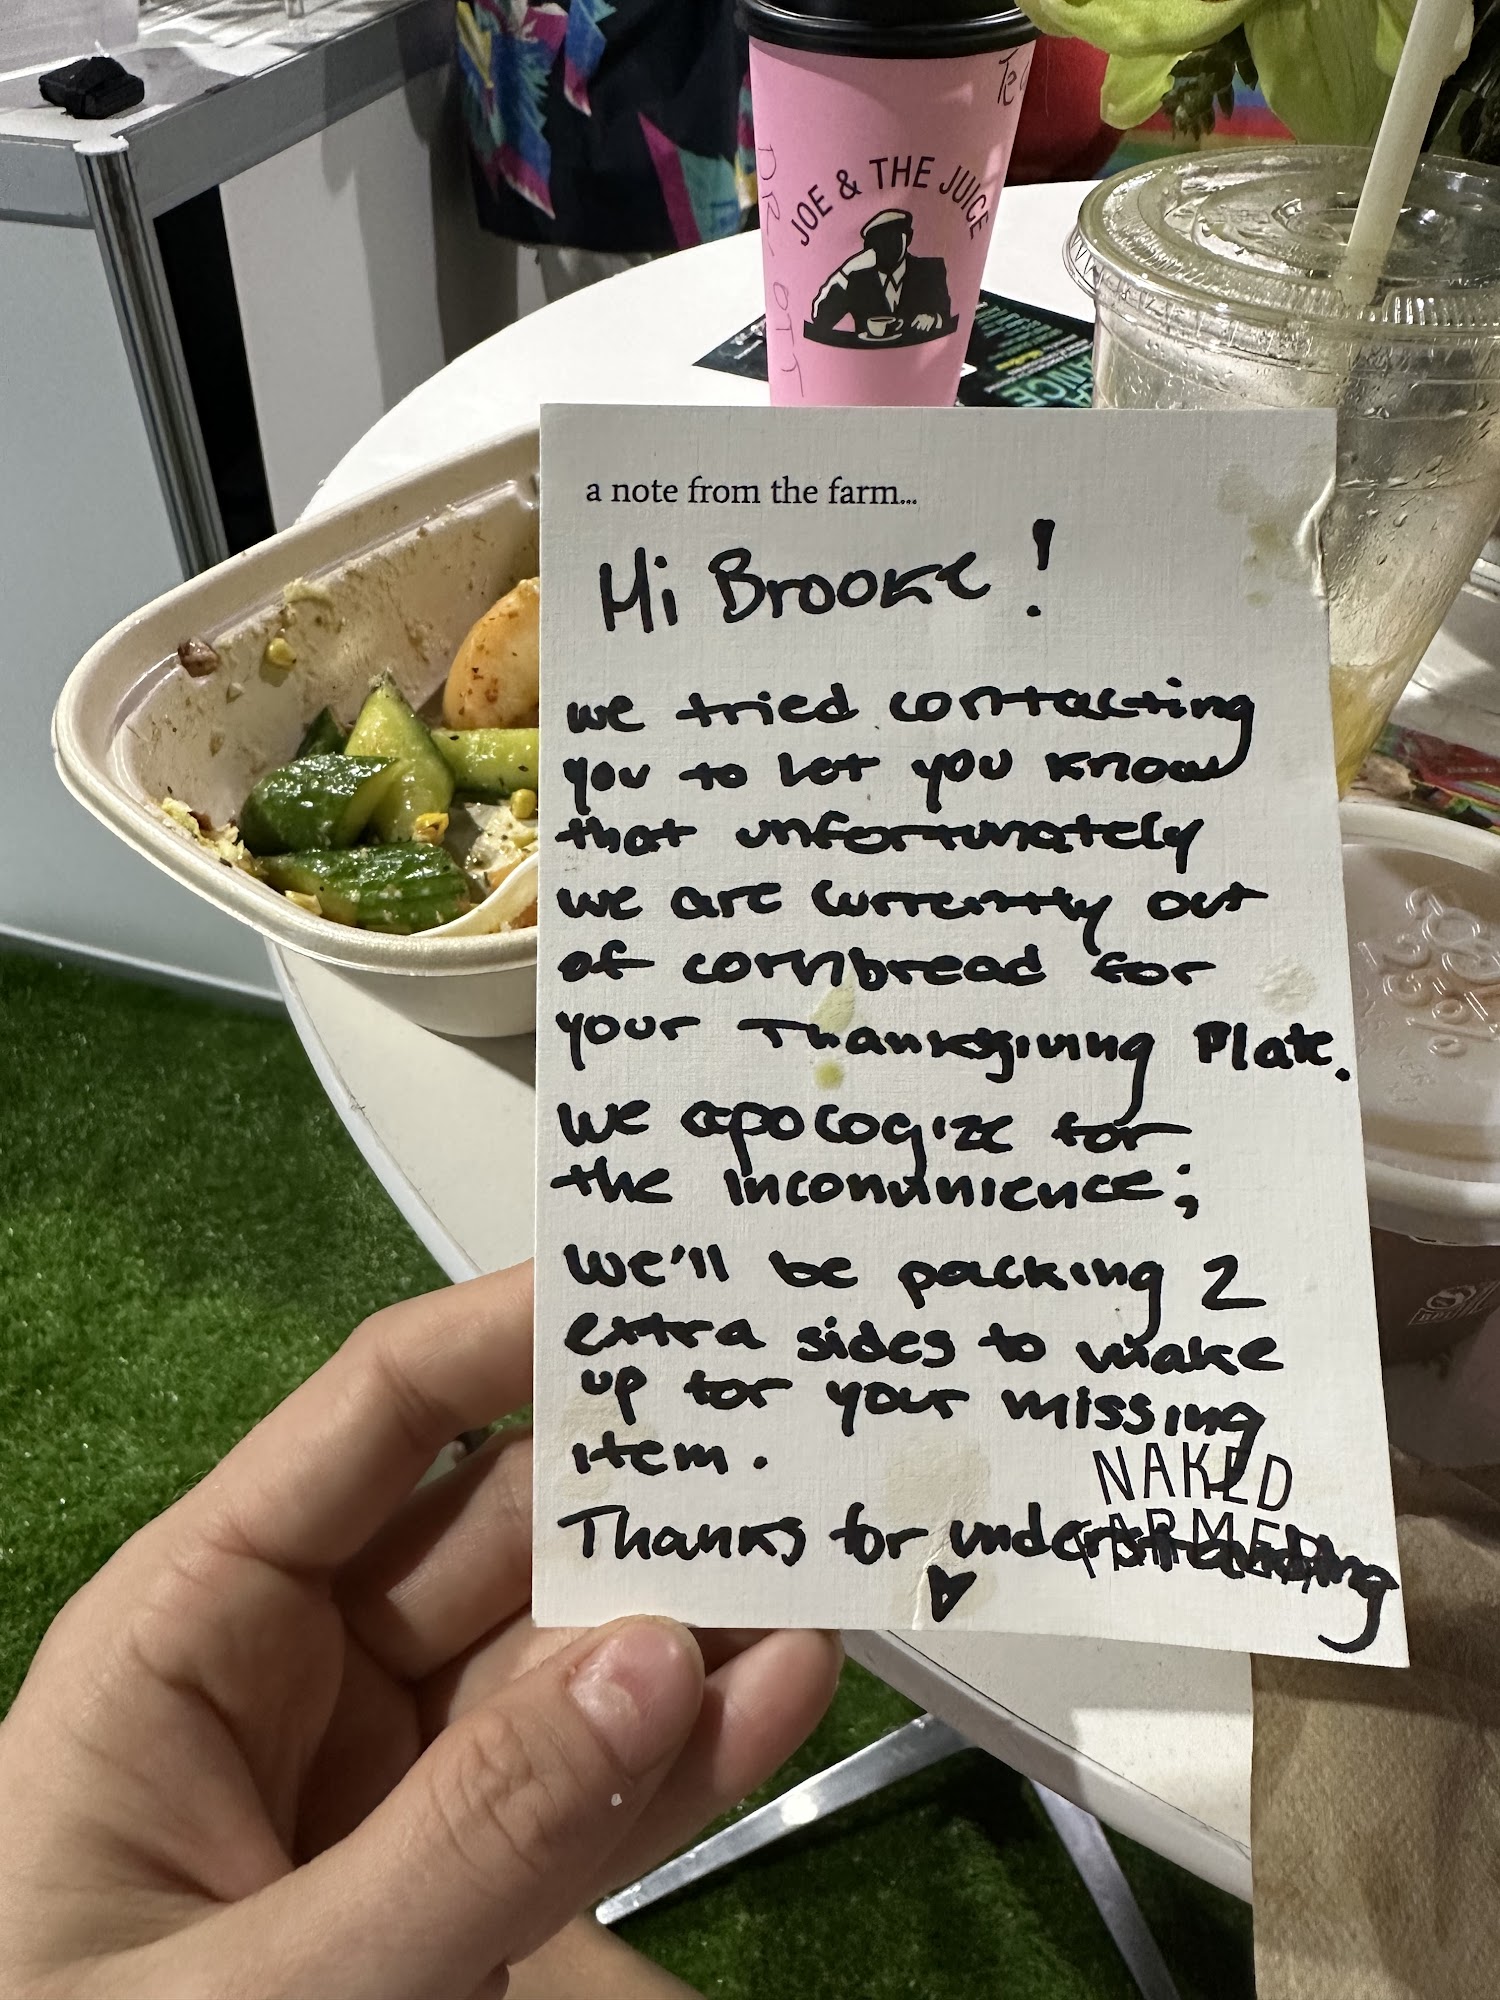 JOE & THE JUICE
a note from the farm...
Hi Brooke!
we tried contacting
you to let you know
that unfortunately
we are currently out
of cornbread for
your Thanksgiving Plate.
We apologize for
the inconvinience;
We'll be packing 2
extra sides to make
up for your missing
item.
Thanks for understanding
NAKED
FARMER